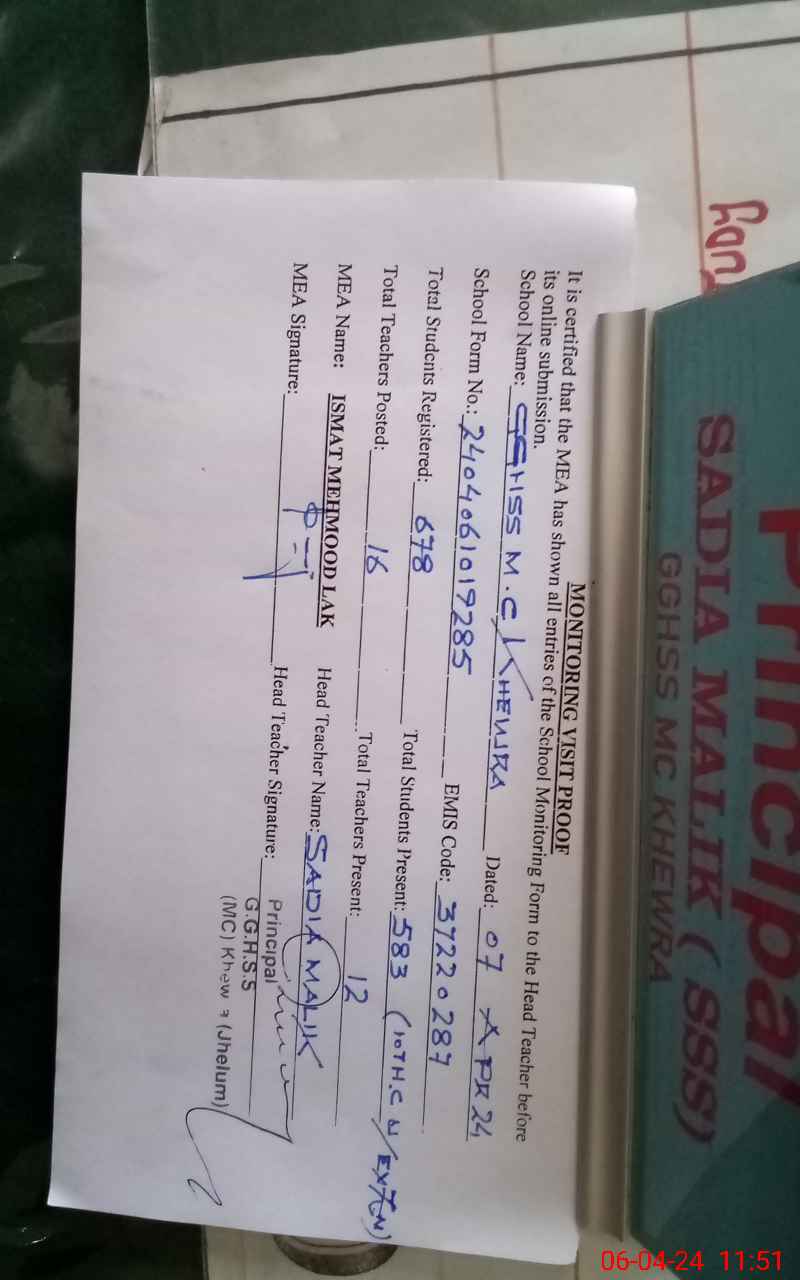 Principal
SADIA MALIK ( SSS)
GGHSS MC KHEWRA
MONITORING VISIT PROOF
It is certified that the MEA has shown all entries of the School Monitoring Form to the Head Teacher before
its online submission.
School Name: GGHSS M.C KHEWRA Dated: 07 APR 24
School Form No.: 2404061019285 EMIS Code: 37220287
Total Students Registered: 678 Total Students Present: 583 (10TH.C N/EXTN)
Total Teachers Posted: 16 Total Teachers Present: 12
MEA Name: ISMAT MEHMOOD LAK Head Teacher Name: SADIA MALIK
MEA Signature: Head Teacher Signature:
Principal
G.G.H.S.S
(MC) Khew a (Jhelum)
06-04-24 11:51